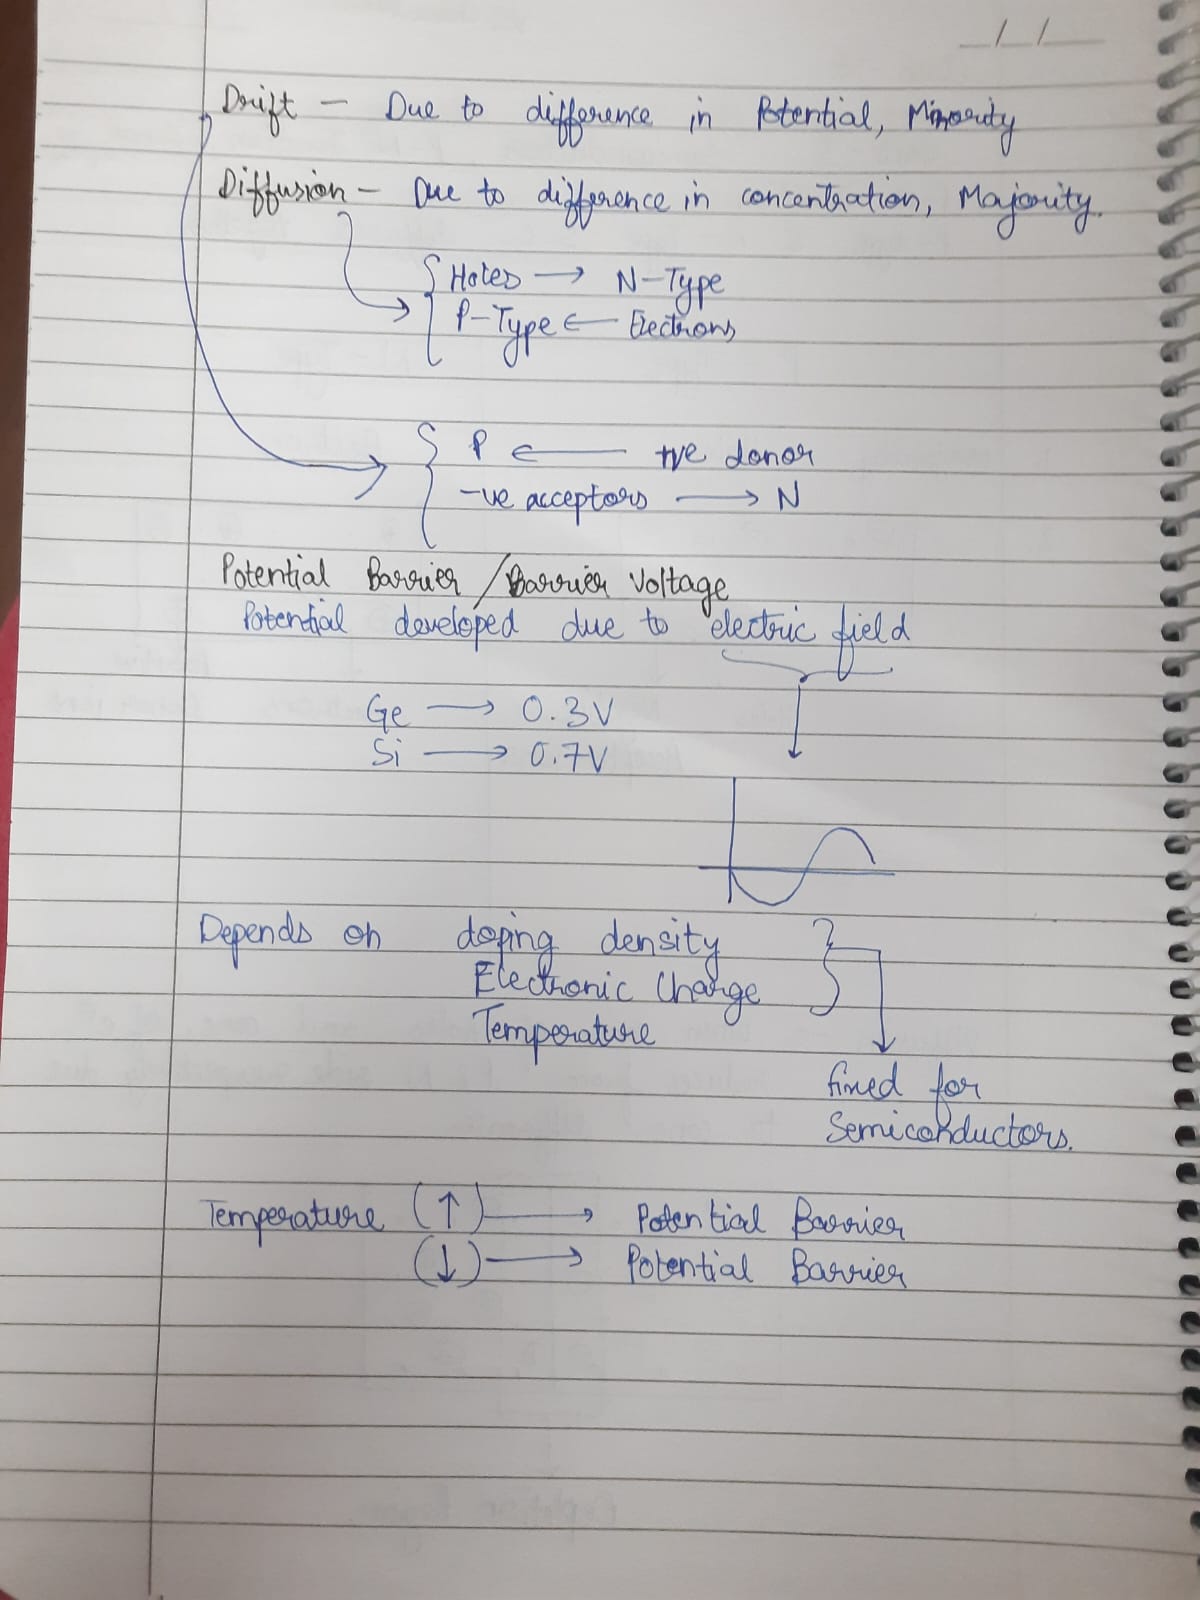 _/_/_
Drift – Due to difference in Potential, Minority
Diffusion – Due to difference in concentration, Majority.
Holes → N-Type
P-Type ← Electrons
P ← +ve donor
-ve acceptors → N
Potential Barrier / Barrier Voltage
Potential developed due to electric field
Ge → 0.3V
Si → 0.7V
Depends on doping density
Electronic Charge
Temperature
fixed for
Semiconductors.
Temperature (↑) → Potential Barrier
(↓) → Potential Barrier